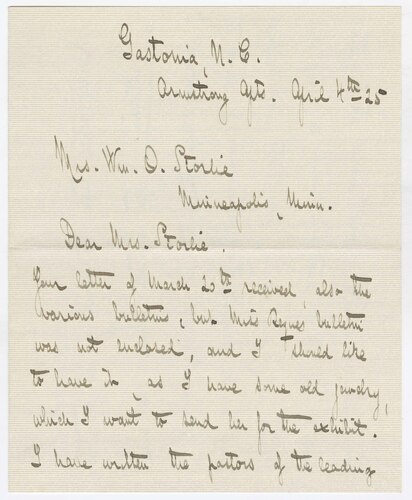 Gastonia, N. C.
Armstrong Apts. April 4th-25
Mrs. Wm. O. Storlie
Minneapolis, Minn.
Dear Mrs. Storlie.
Your letter of March 20th received, also the
various bulletins, but Miss bulletin
was not enclosed, and I should like
to have it, as I have some old jewelry,
which I want to send her for the exhibit.
I have written the pastors of the leading